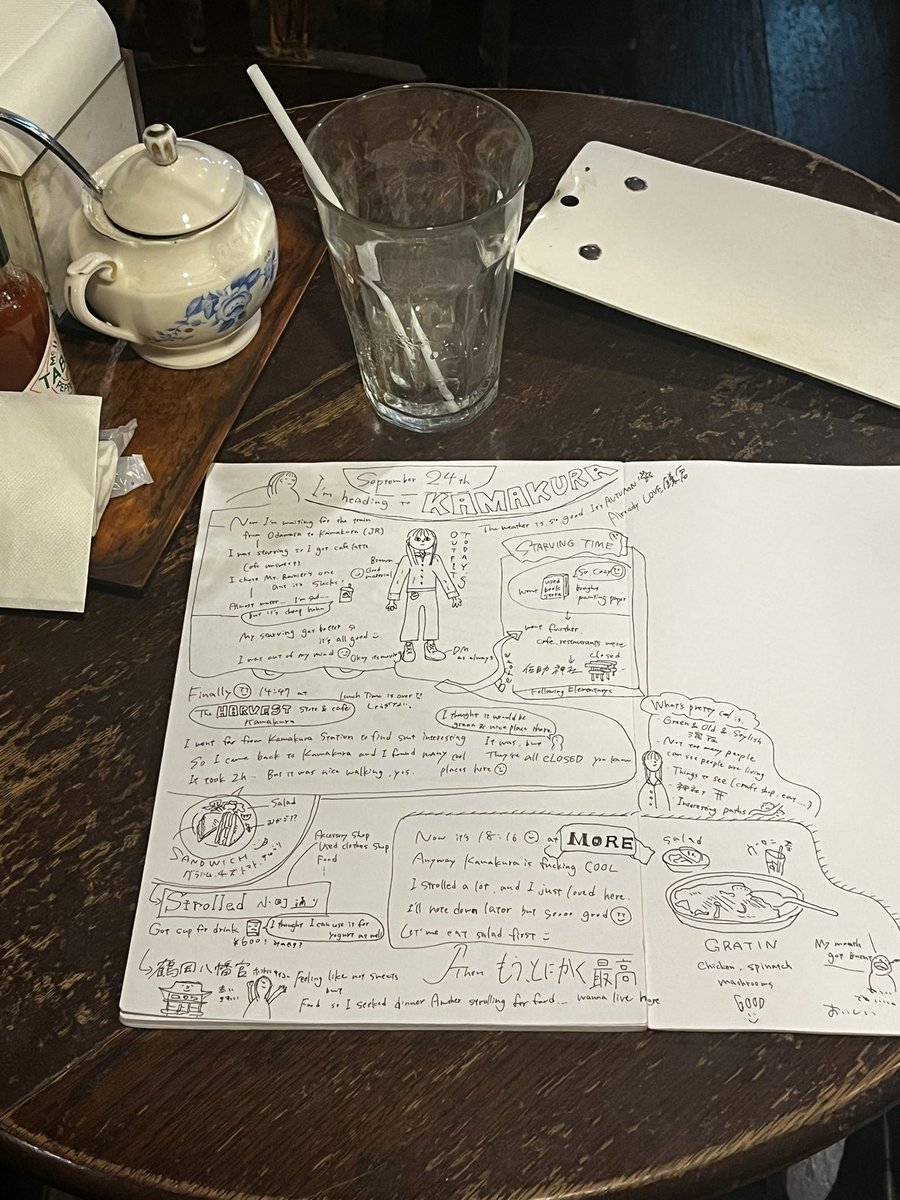 September 24th
I'm heading to KAMAKURA
The weather is so good It's AUTUMN
Already LOVE 鎌倉
Now I'm waiting for the train
from Odawara to Kamakura (JR)
I was starving so I got cafe latte
(cafe unsweet)
I chose Mt. Rainier's one
and it's sucks!
Almost water.. I'm sad...
but it's cheap haha
My starving got better so
it's all good
I was out of my mind Okay it's moving
Brown
Good material
TODAY'S
OUTFITS
DM
as always
STARVING TIME
So cozy
used
book
store
bought
painting paper
went further,
cafe, restaurants were
closed
佐助神社
Following Elementarys
Finally 14:47 at
lunch time is over
The HARVEST store & cafe
Kamakura
I thought it would be
green & nice place there
I went far from Kamakura Station to find smt interesting It was, but
So I came back to Kamakura and I found many cool They're all CLOSED you know
It took 2h.. But it was nice walking, yes. places here
What's pretty cool is..
・Green & Old & Stylish
・Not too many people
can see people are living
・Things to see (craft shop, cave...)
・神社
・Interesting paths
Salad
SANDWICH
Accessory Shop
Used clothes shop
Food
Strolled 小町通り
Got cup for drink
¥600!
I thought I can use it for
yogurt as well
Now it's 18:16 at MORE
Anyway Kamakura is fucking COOL
I strolled a lot, and I just loved here.
I'll note down later but soooo good
Let me eat salad first
salad
GRATIN
Chicken, spinach
mushrooms
GOOD
My mouth
got burnt
おいしい
鶴岡八幡宮
Feeling like not sweets
but
Food so I seeked dinner Another strolling for food... wanna live here
Then もうとにかく最高